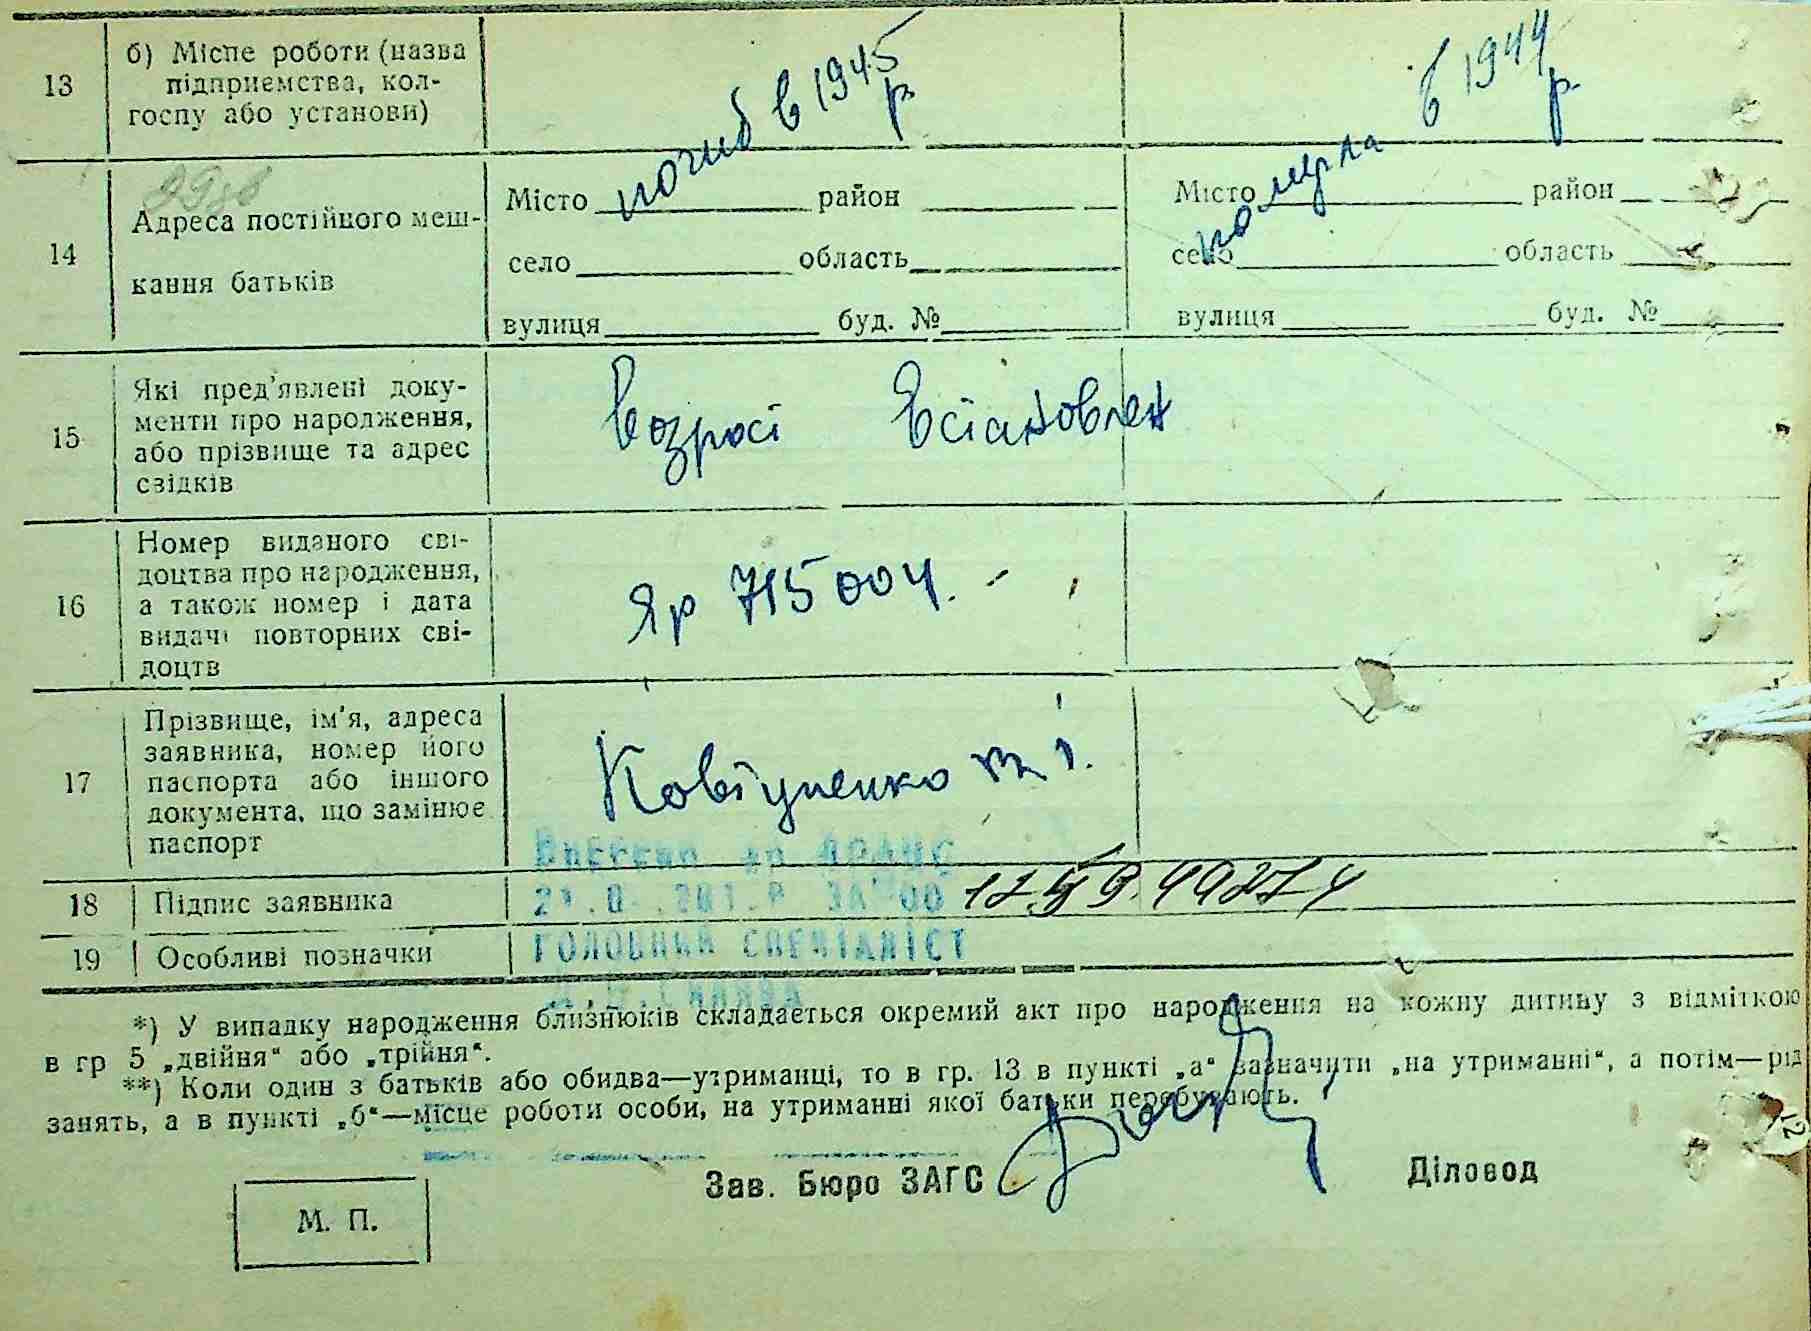 13
б) Місце роботи (назва
підприємства, кол-
госпу або установи)
погиб в 1945 р.
померла в 1944 р.
14
Адреса постійного меш-
кання батьків
Місто район
село область
вулиця буд. №
Місто район
село область
вулиця буд. №
15
Які пред'явлені доку-
менти про народження,
або прізвище та адрес
свідків
Возрост
16
Номер виданого сві-
доцтва про народження,
а також номер і дата
видачі повторних сві-
доцтв
Яр 715004.
17
Прізвище, ім'я, адреса
заявника, номер його
паспорта або іншого
документа, що замінює
паспорт
18
Підпис заявника
19
Особливі позначки
Внесено до ДРАЦС
ГОЛОВНИЙ СПЕЦІАЛІСТ
*) У випадку народження близнюків складається окремий акт про народження на кожну дитину з відміткою
в гр 5 „двійня“ або „трійня“.
**) Коли один з батьків або обидва—утриманці, то в гр. 13 в пункті „а“ зазначити „на утриманні“, а потім—рід
занять, а в пункті „б“—місце роботи особи, на утриманні якої батьки перебувають.
Зав. Бюро ЗАГС
Діловод
М. П.